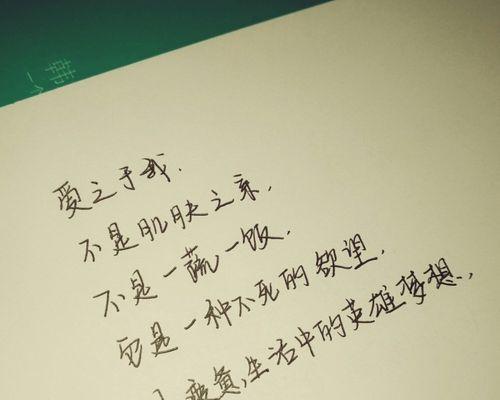 韩
一个
爱之于我.
不是肌肤之亲,
不是一蔬一饭.
它是一种不死的欲望.
疲惫生活中的英雄梦想..